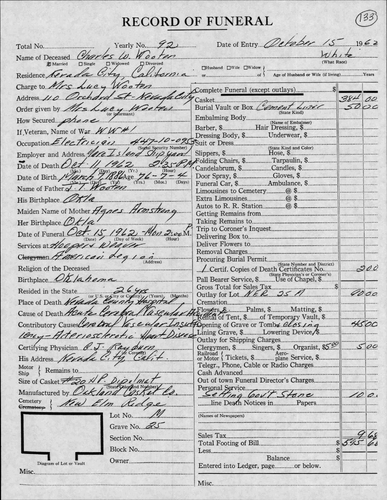 RECORD OF FUNERAL
133
Total No. Yearly No. 92 Date of Entry October 15 1962
Name of Deceased Charles W. Wooten White
Married Single Widowed Divorced Husband Wife Widow of (What Race)
Residence Nevada City, California Age of Husband or Wife (if living) Years
Charge to Mrs Lucy Wooten
Address 110 Orchard St - Nevada City
Order given by Mrs Lucy Wooten
How Secured phone
If Veteran, Name of War WW#1
Occupation Electrician
Employer and Address Mare Island Shipyard
Date of Death Oct 11 1962
Date of Birth March 7 1886 76-7-4
Name of Father J. T. Wooten
His Birthplace Okla
Maiden Name of Mother Agnes Armstrong
Her Birthplace Okla
Date of Funeral Oct. 15, 1962 Mon 2:00 P.
Services at Hooper & Weaver
Clergyman American Legion
Religion of the Deceased
Birthplace Oklahoma
Resided in the State 26 yrs
Place of Death Nevada County Hospital
Cause of Death Acute Cerebral Vascular
Contributory Causes Cerebral Vascular
Arteriosclerotic Heart Disease
Certifying Physician
His Address Nevada City Calif
Motor Ship Remains to
Size of Casket #20 HP Diplomat
Manufacture of Oakland Casket Co.
Cemetery New Elm Ridge
Crematory
Lot No. M
Grave No. 25
Section No.
Block No.
Owner
Diagram of Lot or Vault
Complete Funeral (except outlays) $
Casket
Burial Vault or Box Cement Liner 50.00
(State Kind)
Embalming Body
(Name of Embalmer)
Barber, $ Hair Dressing, $
Dressing Body, $ Underwear, $
Suit or Dress
(State Kind and Color)
Slippers, $ Hose, $
Folding Chairs, $ Tarpaulin, $
Candelabrum, $ Candles, $
Door Spray, $ Gloves, $
Funeral Car, $ Ambulance $
Limousines to Cemetery @ $
Extra Limousines @ $
Autos to R. R. Station @ $
Getting Remains from
Taking Remains to
Trip to Coroner's Inquest
Delivering Box to
Deliver Flowers to
Removal Charges
Procuring Burial Permit
(State Number and District)
1 Certif. Copies of Death Certificates No. 2.00
(State Physician's or Coroner's)
Pall Bearer Service, $ Use of Chapel, $
Gross Total for Sales Tax $
Outlay for Lot NER 25 M 90.00
Cremation
Flowers $ Palms, $ Matting, $
Rental of Tent, $ of Temporary Vault, $
Opening of Grave or Tomb closing 45.00
Lining Grave, $ Lowering Device, $
Outlay for Shipping Charges
Clergymen, $ Singers, $ Organist, $5.00 5.00
Railroad or Motor $ Tickets, $ Aeroplane Service, $
Telegr., Phone, Cable or Radio Charges
Cash Advanced
Out of town Funeral Director's Charges
Personal Service
Setting Govt Stone 10.00
line Death Notices in Papers
(Names of Newspapers)
Sales Tax 9.68
Total Footing of Bill $
Less $
Balance $
Entered into Ledger, page or below.